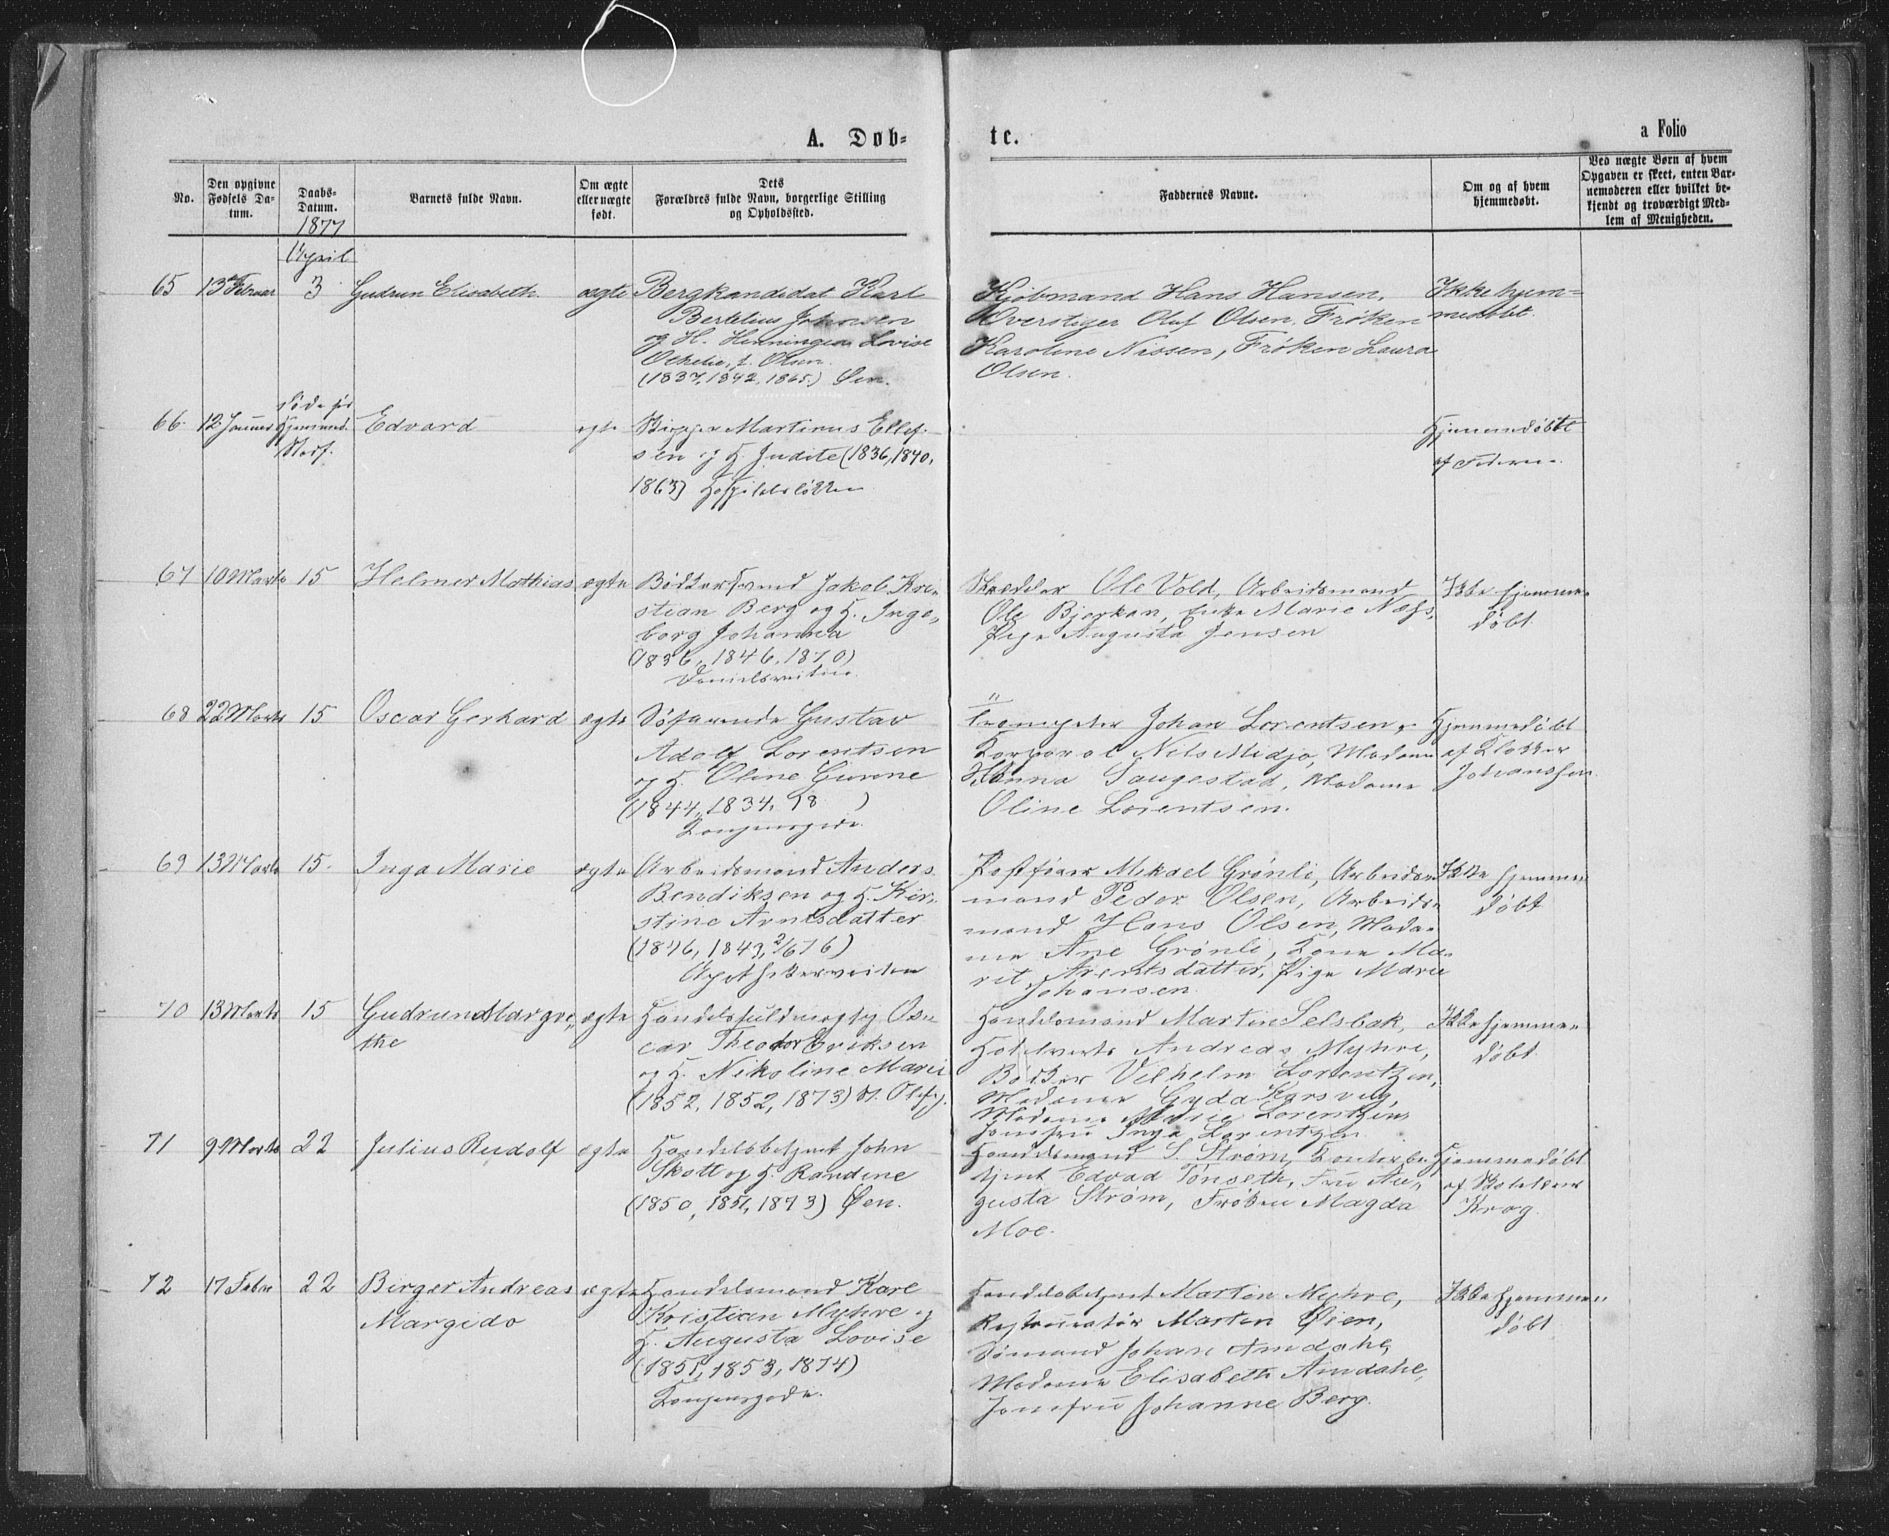 A. Døb=
tc.
a Folio
No.
Den opgivne Fødsels Datum.
Daabs-Datum.
1877
Barnets fulde Navn.
Om ægte eller uægte født.
Dets Forældres fulde Navn, borgerlige Stilling og Opholdssted.
Faddernes Navne.
Om og af hvem hjemmedøbt.
Ved uægte Børn af hvem
Opgaven er skeet, enten Bar-
nemoderen eller hvilket be-
kjendt og troværdigt Med-
lem af Menigheden.
April
65 13 Februar 3 Gudrun Elisabeth ægte Bergkandidat Karl
Bertelius Johnsen
og H. Henningea Lovise
Othelie, f. Olsen.
(1837, 1842, 1865.) Øen.
Kjøbmand Hans Hansen,
Overstiger Oluf Olsen, Frøken
Karoline Nissen, Frøken Laura
Olsen.
Ikke hjem=
medøbt.
66 12 Januar Edvard ægte
Martinus Ellef-
sen og H. Judite (1836, 1840,
1863) Hospitalsløkken
Hjemmedøbt
af Faderen
67 10 Marts 15 Helmer Mathias ægte Bødkersvend Jakob Kri-
stian Berg og H. Inge-
borg Johanna
(1836, 1846, 1870)
Danielsveiten
Skrædder Ole Vold, Arbeidsmand
Ole Bjerkan, Enke Marie Næss,
Pige Augusta Jensen
Ikke hjemme-
døbt
68 22 Marts 15 Oscar Gerhard ægte Søfarende Gustav
Adolf Lorentsen
og H. Oline Gurine
(1844, 1834, 18 )
Kongensgade.
Trompeter Johan Lorentsen,
Korporal Nels Midjo, Madame
Hanna Saugestad, Madame
Oline Lorentsen.
Hjemmedøbt
af Klokker
Johanssen
69 13 Marts 15. Inga Marie ægte Arbeidsmand Anders
Bendiksen og H. Kir-
stine Arntsdatter
(1846, 1843, 2/6 76)
Apothekerveiten
Postfører Mikael Grønli, Arbeids-
mand Peder Olsen, Arbeids-
mand Hans Olsen, Mada-
me Ane Grønli, Kone Ma-
rit Arentsdatter, Pige Marie
Johansen.
Ikke hjemme-
døbt
70 13 Marts 15 Gudrun Margre-
the
ægte Handelsfuldmægtig Os-
car Theodor Eriksen
og H. Nikoline Marie
(1852, 1852, 1873) St. Olafsg.
Handelsmand Martin Selsbak,
Hotelvert Andreas Myhre,
Bødker Vilhelm Lorentzen,
Madame Gyda Karsveg,
Madame Marie Lorentzen,
Jomfru Inga Lorentzen
Ikke hjemme-
døbt
71 9 Marts 22 Julius Rudolf ægte Handelsbetjent John
Skott og H. Randine
(1850, 1851, 1873) Øen.
Handelsmand S. Strøm, Kontorbe-
tjent Edvad Tønseth, Fru Au-
gusta Strøm, Frøken Magda
Moe.
Hjemmedøbt
af
Krog
72 17 Febr 22 Birger Andreas
Margido
ægte Handelsmand Karl
Kristian Myhre og
H. Augusta Lovise
(1851, 1853, 1874)
Kongensgade.
Handelsbetjent Martin Myhre,
Restauratør Marten Øien,
Sømand Johan Amdahl,
Madame Elisabeth Amdahl,
Jomfru Johanne Berg.
Ikke hjemme-
døbt